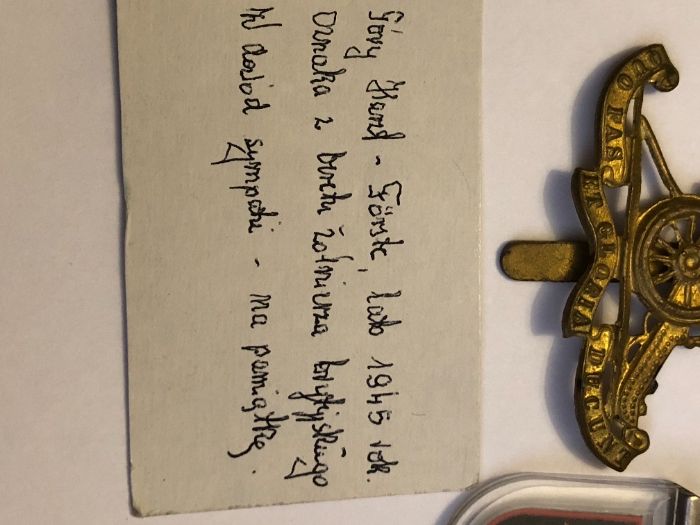 Góry Harz - Förste, lato 1945 rok.
Oznaka z beretu żołnierza brytyjskiego
W dowód sympatii - na pamiątkę.
QUO FAS
ET GLORIA
DUCUNT